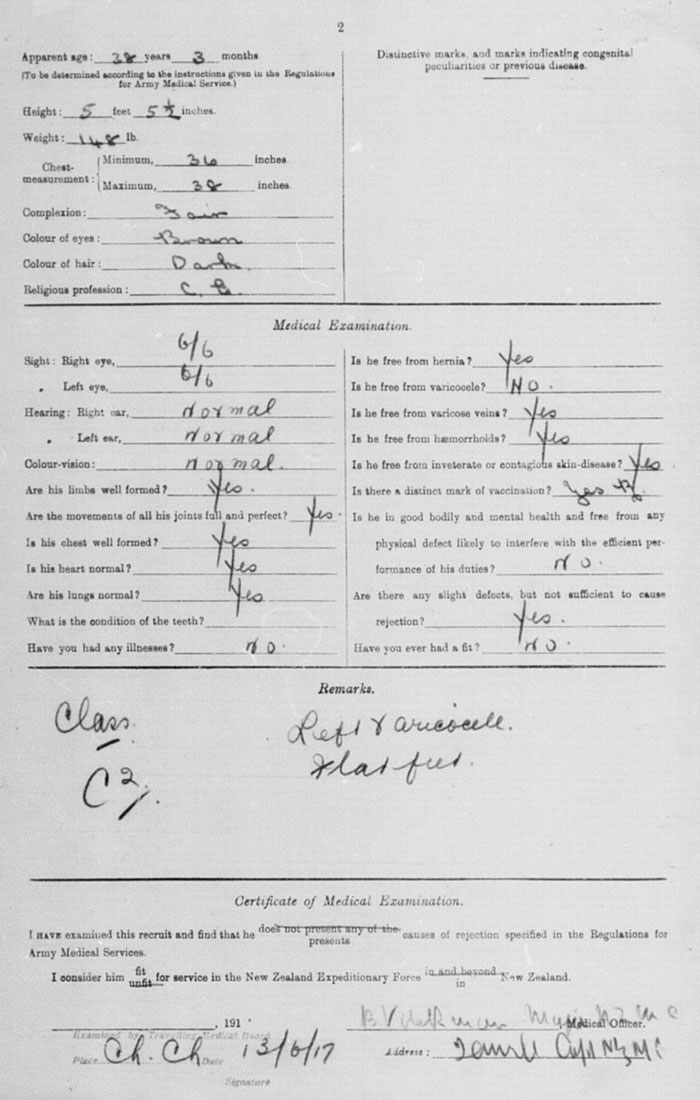 2
Apparent age: 38 years 3 months
(To be determined according to the instructions given in the Regulations
for Army Medical Service.)
Height: 5 feet 5½ inches.
Weight: 148 lb.
Chest-measurement: Minimum, 36 inches.
Maximum, 38 inches.
Complexion: Fair
Colour of eyes: Brown
Colour of hair: Dark.
Religious profession: C. E
Distinctive marks, and marks indicating congenital
peculiarities or previous disease.
Medical Examination.
Sight: Right eye, 6/6
" Left eye, 6/6
Hearing: Right ear, Normal
" Left ear, Normal
Colour-vision: Normal.
Are his limbs well formed? Yes.
Are the movements of all his joints full and perfect? Yes.
Is his chest well formed? Yes
Is his heart normal? Yes
Are his lungs normal? Yes
What is the condition of the teeth?
Have you had any illnesses? No.
Is he free from hernia? Yes
Is he free from varicocele? No.
Is he free from varicose veins? Yes
Is he free from hæmorrhoids? Yes
Is he free from inveterate or contagious skin-disease? Yes
Is there a distinct mark of vaccination? Yes
Is he in good bodily and mental health and free from any
physical defect likely to interfere with the efficient per-
formance of his duties? No.
Are there any slight defects, but not sufficient to cause
rejection? Yes.
Have you ever had a fit? No.
Remarks.
Class
C2
Left Varicocele.
Flat feet.
Certificate of Medical Examination.
I HAVE examined this recruit and find that he does not present any of the presents causes of rejection specified in the Regulations for
Army Medical Services.
I consider him fit unfit for service in the New Zealand Expeditionary Force in and beyond in New Zealand.
, 191
Major NZMC
Medical Officer.
Examined by Travelling Medical Board
Place Ch. Ch Date 13/6/17
Address: Capt NZMC
Signature